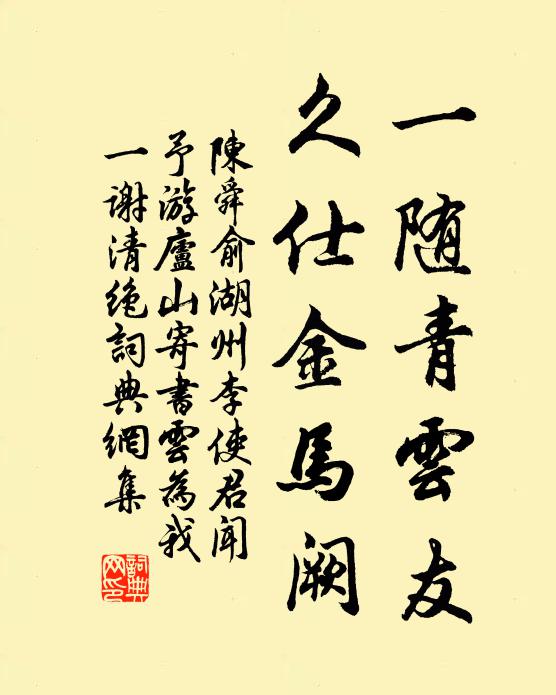 一随青雲友
久仕金馬闕
陳舜俞湖州李使君聞
予游廬山寄書雲為我
一谢清絶詞典網集
詞典
网印